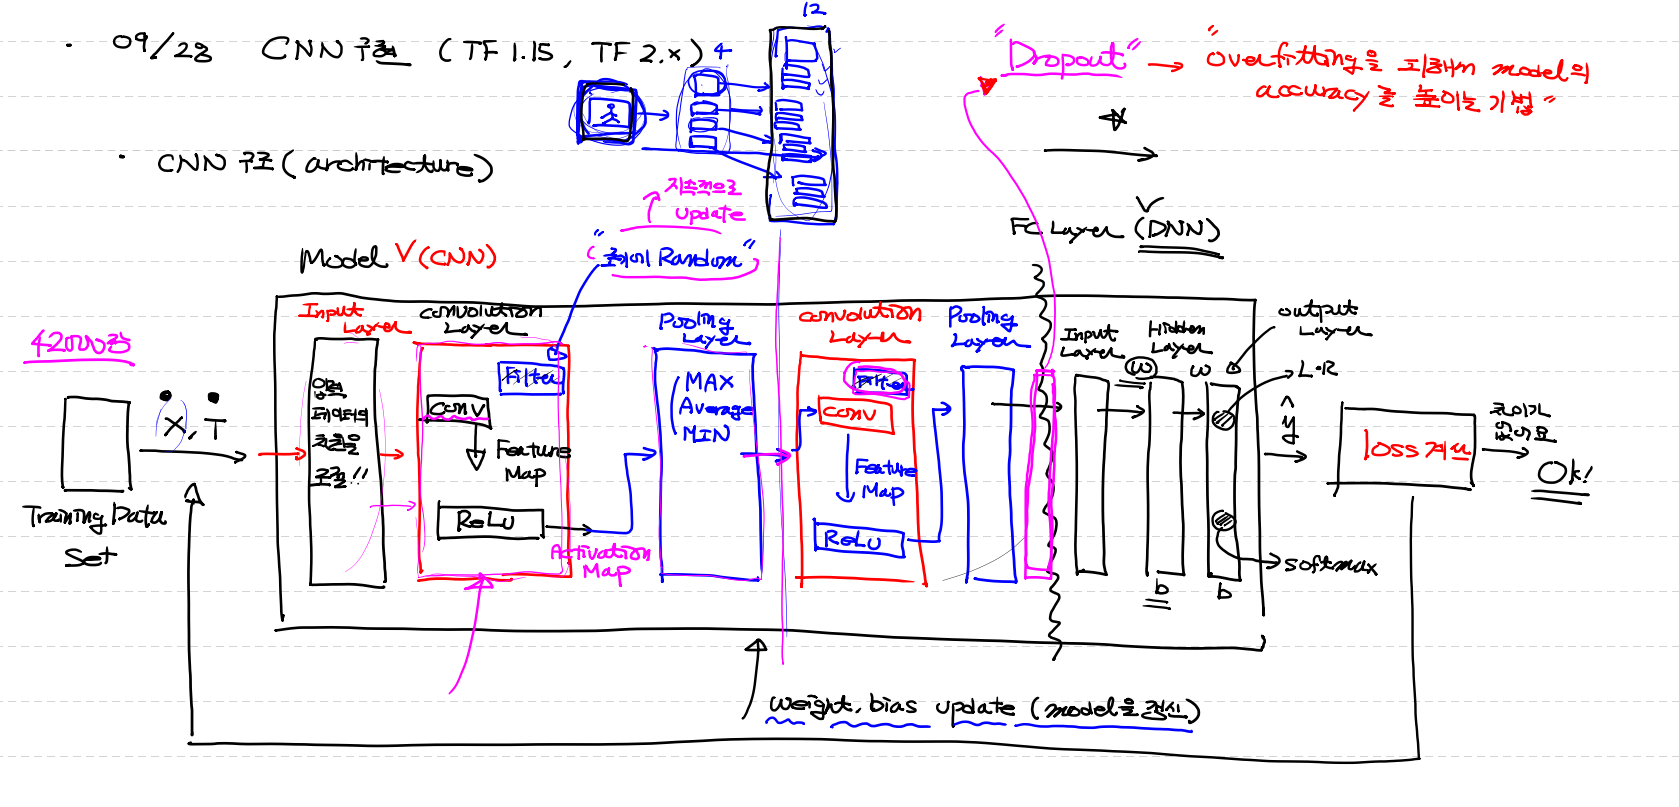 · 09/28 CNN 구현 (TF 1.15, TF 2.x)
4
12
"Dropout" → "Overfitting을 피해서 model의
accuracy를 높이는 기법"
· CNN 구조 (architecture)
지속적으로
update
FC Layer (DNN)
Model (CNN)
("초기 Random")
42000장
Input
Layer
convolution
Layer
Pooling
Layer
convolution
Layer
Pooling
Layer
Input
Layer
Hidden
Layer
output
Layer
입력
데이터의
차원을
조절!!
Filter
conv
Feature
Map
ReLU
Activation
Map
MAX
Average
MIN
Filter
conv
Feature
Map
ReLU
W
b
W
b
L·R
softmax
X, T
Training Data
Set
ŷ
loss 계산
차이가
없어요
OK!
weight, bias update (model을 갱신)